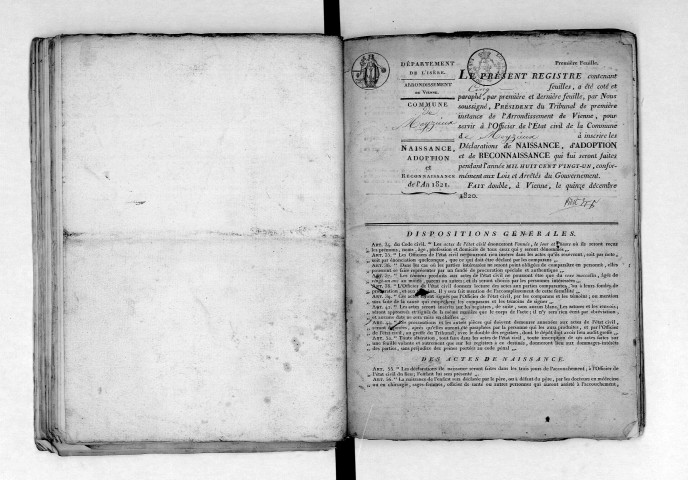 DÉPARTEMENT
DE L'ISÈRE.
ARRONDISSEMENT
DE VIENNE.
COMMUNE
de
Meyzieux
NAISSANCE,
ADOPTION
et
RECONNAISSANCE
de l'An 1821.
Première Feuille.
LE PRÉSENT REGISTRE contenant
Cinq feuilles, a été coté et
paraphé, par première et dernière feuille, par Nous
soussigné, PRÉSIDENT du Tribunal de première
instance de l'Arrondissement de Vienne, pour
servir à l'Officier de l'Etat civil de la Commune
de Meyzieux à inscrire les
Déclarations de NAISSANCE, d'ADOPTION
et de RECONNAISSANCE qui lui seront faites
pendant l'année MIL HUIT CENT VINGT-UN, confor-
mément aux Lois et Arrêtés du Gouvernement.
FAIT double, à Vienne, le quinze décembre
1820.
DISPOSITIONS GÉNÉRALES.
ART. 34. du Code civil. « Les actes de l'état civil énonceront l'année, le jour et l'heure où ils seront reçus
les prénoms, noms, âge, profession et domicile de tous ceux qui y seront dénommés ».
ART. 35. « Les Officiers de l'état civil ne pourront rien insérer dans les actes qu'ils recevront, soit par note,
soit par énonciation quelconque, que ce qui doit être déclaré par les comparans ».
ART. 36. « Dans les cas où les parties intéressées ne seront point obligées de comparaître en personne, elles
pourront se faire représenter par un fondé de procuration spéciale et authentique ».
ART. 37. « Les témoins produits aux actes de l'état civil ne pourront être que du sexe masculin, âgés de
vingt-un ans au moins, parens ou autres; et ils seront choisis par les personnes intéressées ».
ART. 38. « L'Officier de l'état civil donnera lecture des actes aux parties comparantes, ou à leurs fondés de
procuration, et aux témoins. Il y sera fait mention de l'accomplissement de cette formalité ».
ART. 39. « Ces actes seront signés par l'Officier de l'état civil, par les comparans et les témoins; ou mention
sera faite de la cause qui empêchera les comparans et les témoins de signer ».
ART. 42. « Les actes seront inscrits sur les registres, de suite, sans aucun blanc. Les ratures et les renvois
seront approuvés et signés de la même manière que le corps de l'acte; il n'y sera rien écrit par abréviation,
et aucune date ne sera mise en chiffres ».
ART. 44. « Les procurations et les autres pièces qui doivent demeurer annexées aux actes de l'état civil,
seront déposées, après qu'elles auront été paraphées par la personne qui les aura produites, et par l'Officier
de l'état civil, au greffe du Tribunal, avec le double des registres, dont le dépôt doit avoir lieu audit greffe ».
ART. 52. « Toute altération, tout faux dans les actes de l'état civil, toute inscription de ces actes faite sur
une feuille volante et autrement que sur les registres à ce destinés, donneront lieu aux dommages-intérêts
des parties, sans préjudice des peines portées au code pénal ».
DES ACTES DE NAISSANCE.
ART. 55. « Les déclarations de naissance seront faites dans les trois jours de l'accouchement, à l'Officier de
l'état civil du lieu; l'enfant lui sera présenté ».
ART. 56. « La naissance de l'enfant sera déclarée par le père, ou à défaut du père, par les docteurs en médecine
ou en chirurgie, sages-femmes, officiers de santé ou autres personnes qui auront assisté à l'accouchement,